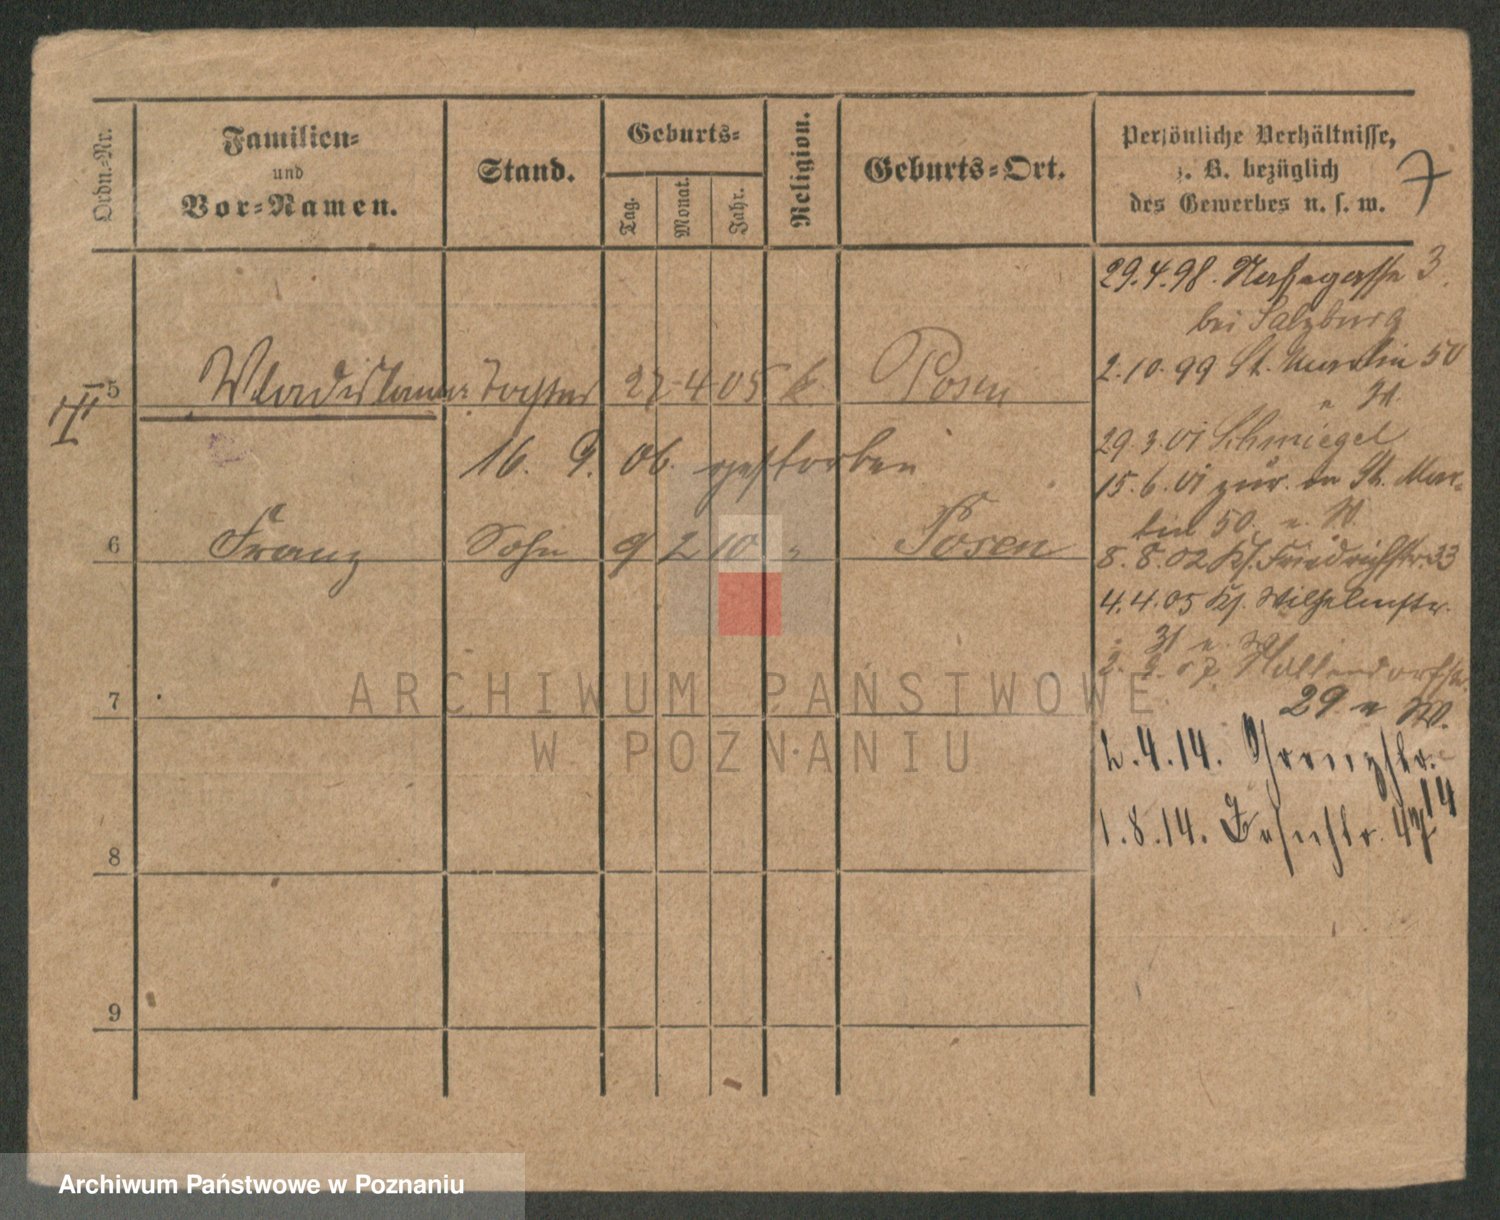 Ordn.-Nr.
Familien-
und
Vor-Namen.
Stand.
Geburts-
Tag.
Monat.
Jahr.
Religion.
Geburts-Ort.
Persönliche Verhältnisse,
z. B. bezüglich
des Gewerbes u. s. w.
7
5 Wladislawa Tochter 27-4-05 k. Posen
16. 9. 06. gestorben
6 Franz Sohn 9 2 10 " Posen
7
8
9
29.4.98. 3
bei Salzburg
2.10.99 St. Martin 50
29.3.01 Schmiegel
15.6.01 zur. St. Mar-
tin 50
8.8.02 Friedrichstr. 33
4.4.05 Wilhelmstr.
31
2. 07
29 W.
2.4.14. Grenzstr.
14
1.8.14.
ARCHIWUM PAŃSTWOWE
W POZNANIU
Archiwum Państwowe w Poznaniu